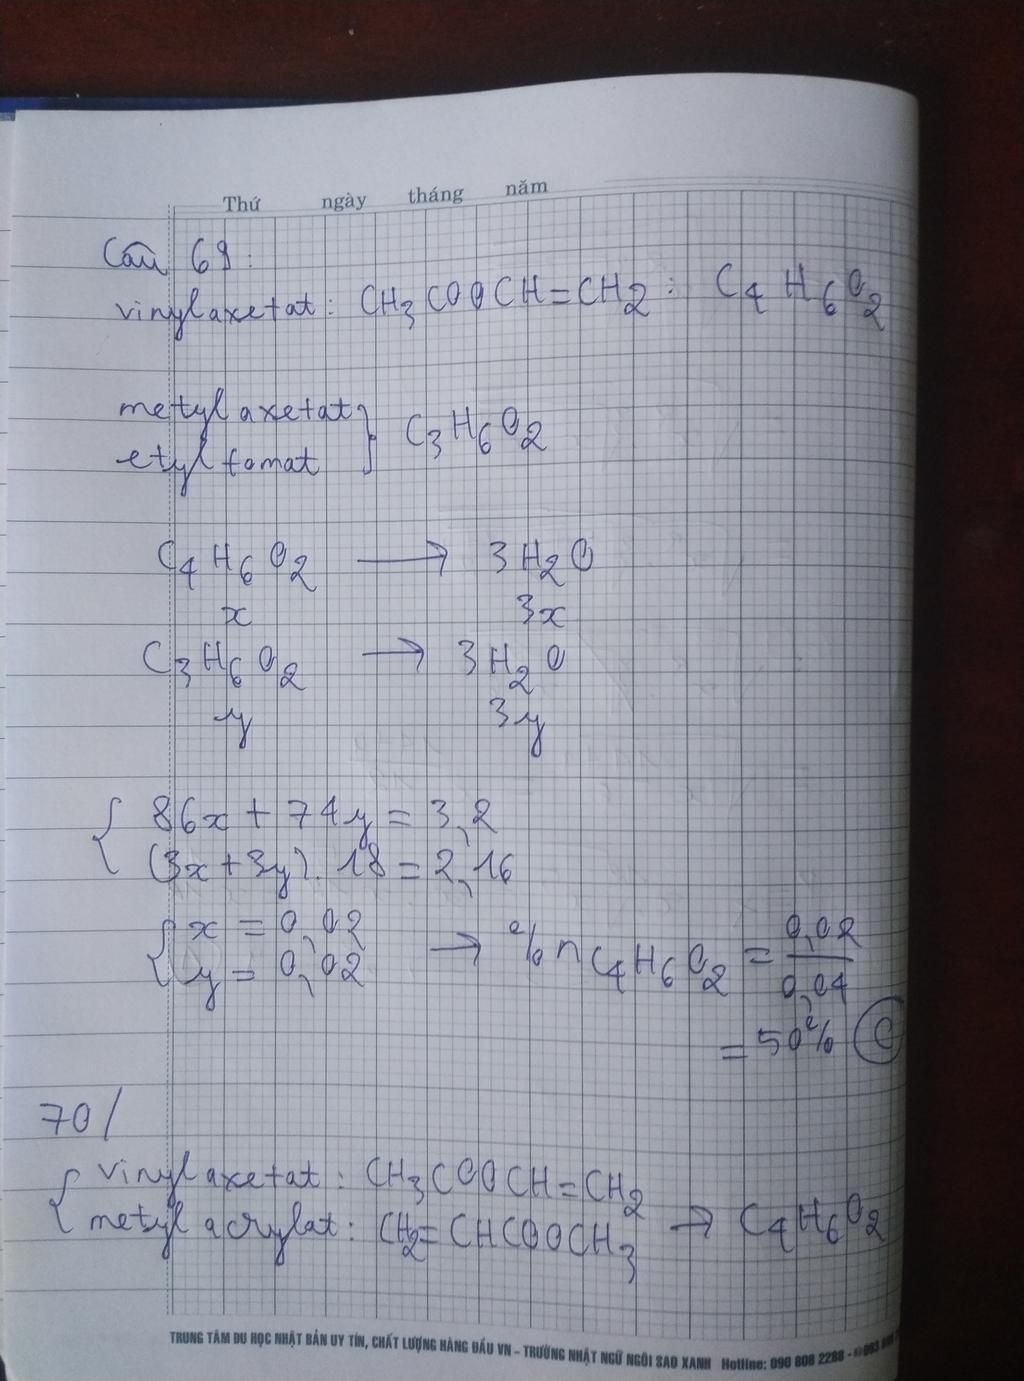 Thứ ngày tháng năm
Câu 69:
vinylaxetat: CH3COOCH=CH2: C4H6O2
metylaxetat
etyl fomat } C3H6O2
C4H6O2 → 3H2O
x 3x
C3H6O2 → 3H2O
y 3y
{ 86x + 74y = 3,2
(3x+3y).18 = 2,16
{ x = 0,02
y = 0,02 → % n C4H6O2 = 0,02/0,04
= 50% C
70/
{ vinylaxetat: CH3COOCH=CH2
metyl acrylat: CH2=CHCOOCH3 → C4H6O2
TRUNG TÂM DU HỌC NHẬT BẢN UY TÍN, CHẤT LƯỢNG HÀNG ĐẦU VN - TRƯỜNG NHẬT NGỮ NGÔI SAO XANH Hotline: 090 808 2288 -